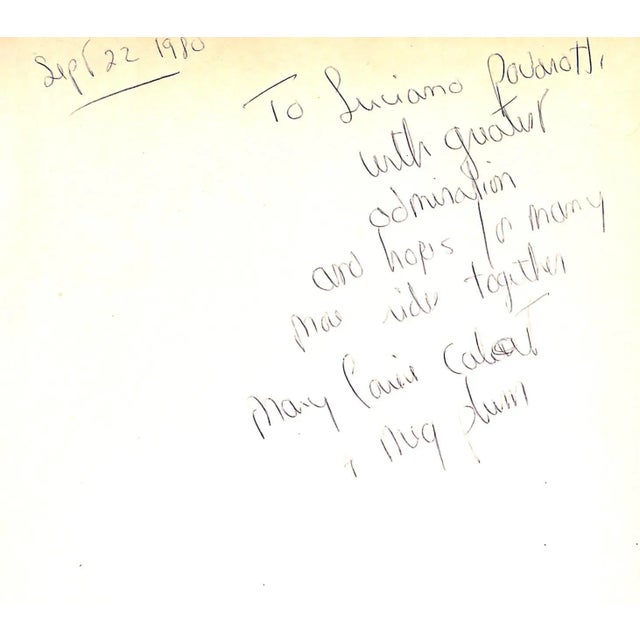 Sept 22 1980
To Luciano Pavarotti,
with greatest
admiration
and hopes for many
more rides together
Mary Cabot
+ Meg Plum